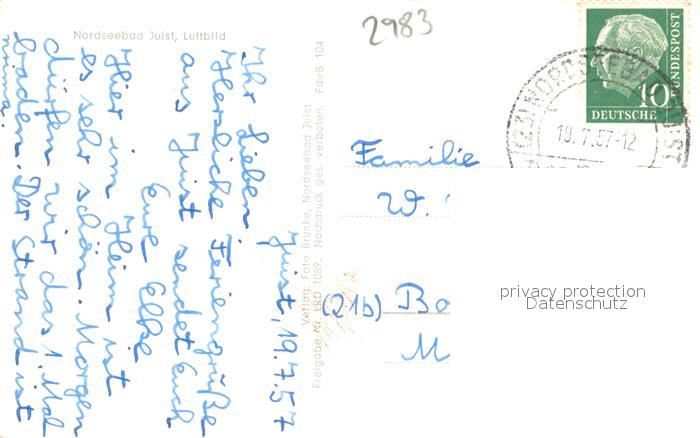 Nordseebad Juist, Luftbild
2983
Juist, 19.7.57
Ihr Lieben
Herzliche Feriengrüße
aus Juist sendet Euch
Eure Elke
Hier im Heim ist
es sehr schön. Morgen
dürfen wir das 1. Mal
baden. Der Strand ist
prima.
Verlag Foto Brunke, Nordseebad Juist
Freigabe Nr. LRD 1089. Nachdruck ges. verboten. FdeB 104
DEUTSCHE BUNDESPOST
10
(23) NORDSEEBAD JUIST
19.7.57-12
Familie
W.
(21b) Bo
M
privacy protection
Datenschutz